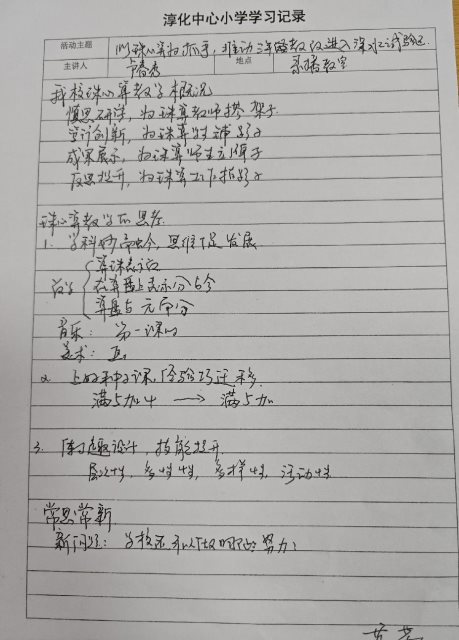 淳化中心小学学习记录
活动主题 以珠心算为抓手，推动三年级数改进入深水试验区
主讲人 卢春秀 地点 录播教室
我校珠心算教学概况
慎思研学，为珠算教师搭架子
尝试创新，为珠算特铺路子
成果展示，为珠算师生立牌子
反思提升，为珠算工作指路子
珠心算教学的思考
1. 学科融合，思维 发展
算珠表示
数学 在算盘上表示分与分
算盘与元角分
音乐：第一课
美术：画
2. 上好种子课，经验巧迁移
满5加4 → 满5加
3. 练习题设计，技能提升
层次性，多样性，活动性
常思常新
新问题：学校还可以做哪些努力？